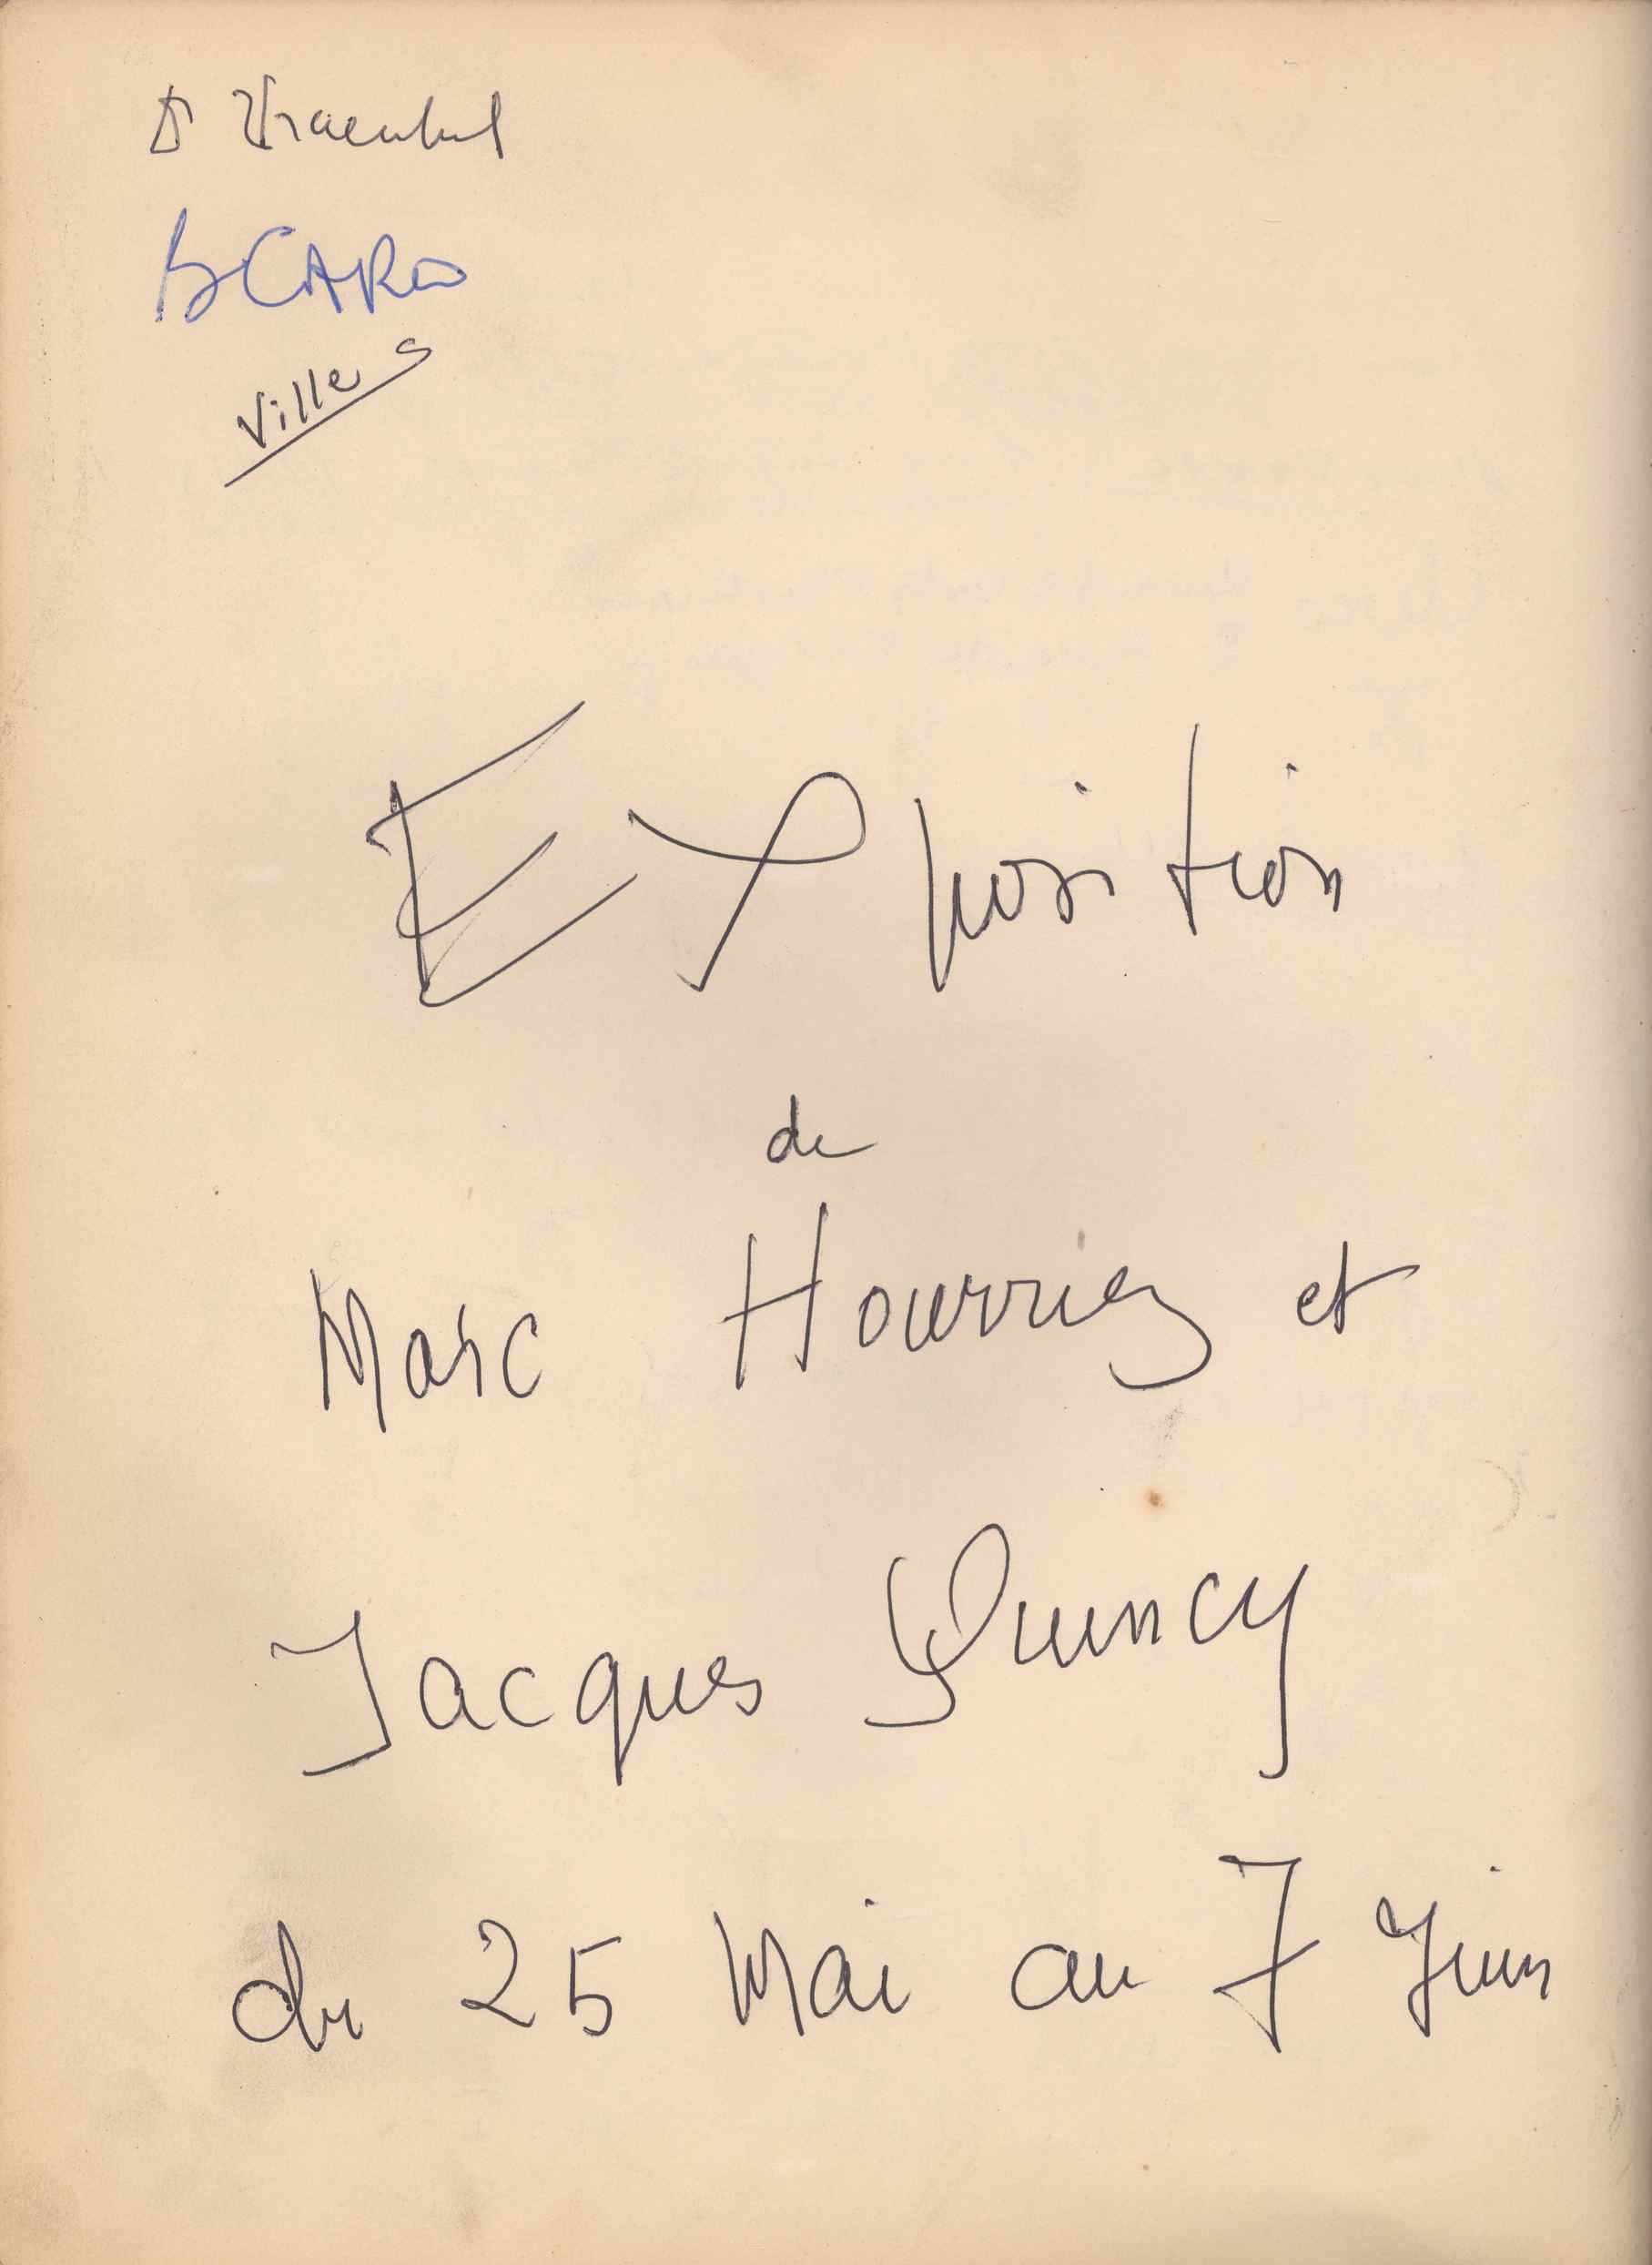 CARO
Ville
Exposition
de
Marc Hourriez et
Jacques Quincy
du 25 Mai au 7 Juin